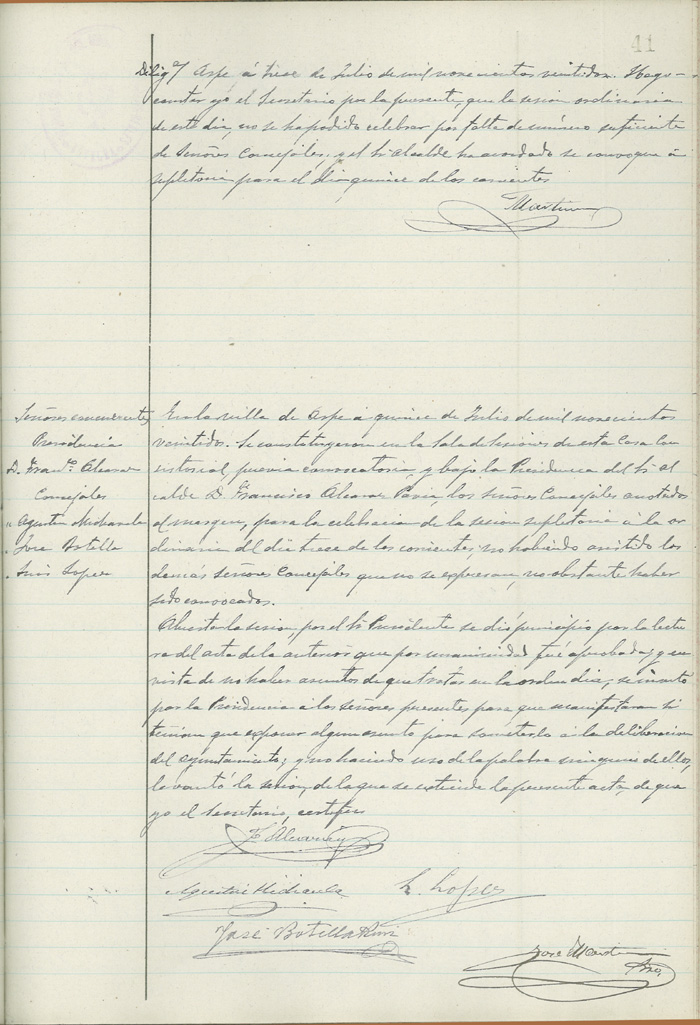 41
Dilig.ª Aspe á trece de Julio de mil novecientos veintidos. Hago
constar yo el Secretario por la presente, que la sesion ordinaria
de este dia, no se ha podido celebrar por falta de número suficiente
de Señores Concejales; y el Sr. Alcalde ha acordado se convoque á
supletoria para el dia quince de los corrientes
Martinez
Señores concurrentes
Presidencia
D. Fran.co Alcaraz
Concejales
" Agustin Mirambell
" Jose Botella
" Luis Lopez
En la villa de Aspe á quince de Julio de mil novecientos
veintidos. Se constituyeron en la Sala de Sesiones de esta Casa Con
sistorial, previa convocatoria, y bajo la Presidencia del Sr. Al
calde D. Francisco Alcaraz Pavia, los señores Concejales anotados
al margen, para la celebracion de la sesion supletoria á la or
dinaria del dia trece de los corrientes; no habiendo asistido los
demás señores Concejales que no se expresan, no obstante haber
sido convocados.
Abierta la sesion, por el Sr. Presidente se dió principio por la lectu
ra del acta de la anterior que por unanimidad fué aprobada; y en
vista de no haber asuntos de que tratar en la orden dia, se invitó
por la Presidencia á los señores presentes para que manifestaran si
tenian que exponer algun asunto para someterlo á la deliberacion
del Ayuntamiento; y no haciendo uso de la palabra ninguno de ellos,
levantó la sesion, de la que se extiende la presente acta, de que
yo el Secretario, certifico
F. Alcaraz
Agustin
L. Lopez
José Botella
Jose Martinez
Srio.